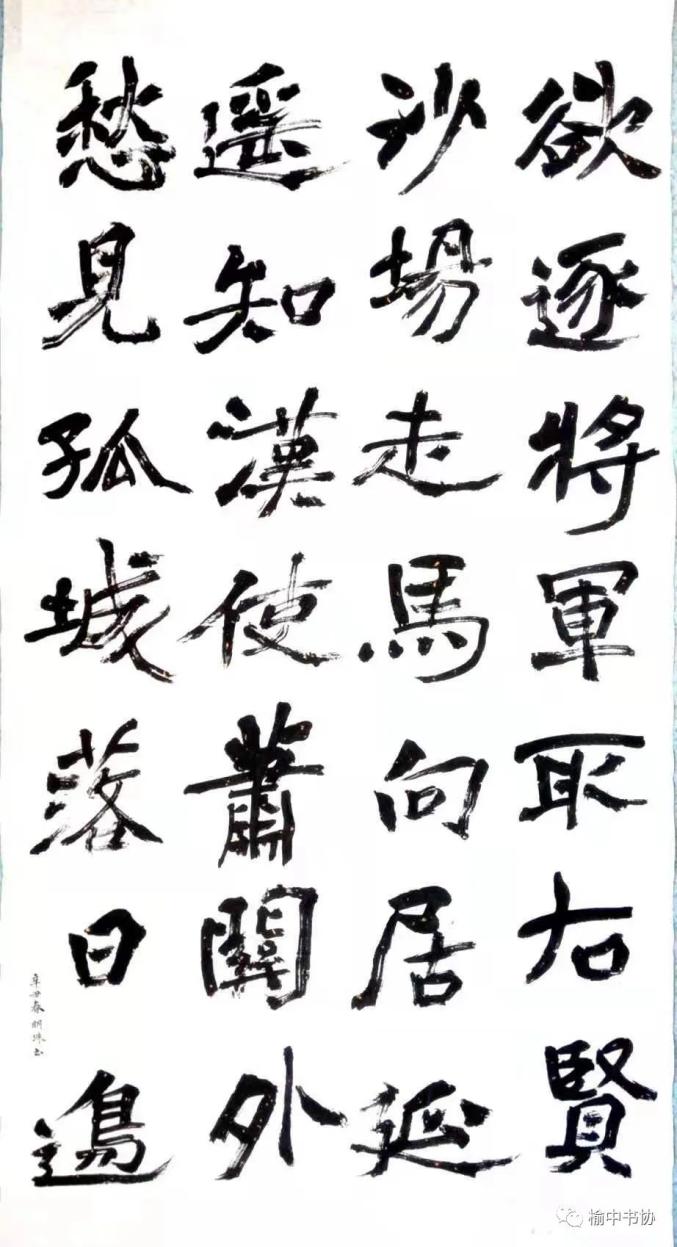 欲逐將軍取右賢
沙場走馬向居延
遥知漢使蕭關外
愁見孤城落日邊
辛丑春明珠書
榆中书协